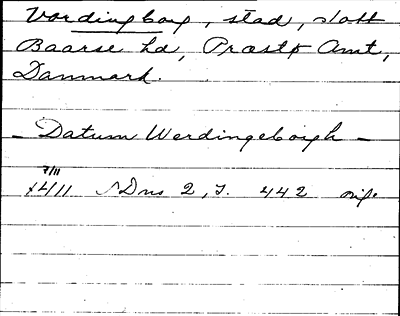 Vordingborg, stad, slott
Baarse hd, Præstø Amt,
Danmark.
- Datum Werdingeborgh -
7/11
1411 SDns 2, s. 442